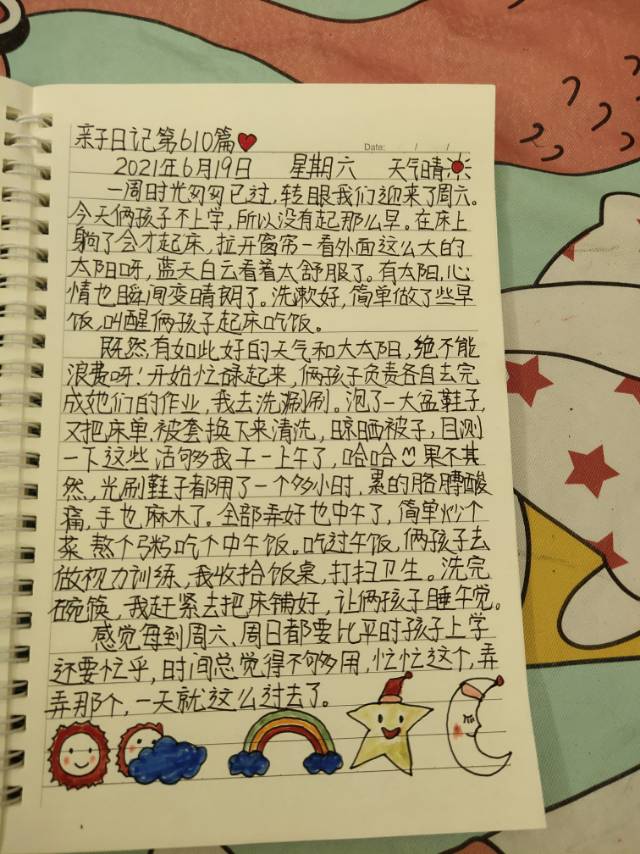 亲子日记第610篇
Date: / /
2021年6月19日 星期六 天气晴
一周时光匆匆已过,转眼我们迎来了周六。
今天俩孩子不上学,所以没有起那么早。在床上
躺了会才起床,拉开窗帘一看外面这么大的
太阳呀,蓝天白云看着太舒服了。有太阳,心
情也瞬间变晴朗了。洗漱好,简单做了些早
饭,叫醒俩孩子起床吃饭。
既然有如此好的天气和大太阳,绝不能
浪费呀!开始忙碌起来,俩孩子负责各自去完
成她们的作业,我去洗涮刷。泡了一大盆鞋子,
又把床单.被套换下来清洗,晾晒被子,目测
一下这些活够我干一上午了,哈哈果不其
然,光刷鞋子都用了一个多小时,累的胳膊酸
痛,手也麻木了。全部弄好也中午了,简单炒个
菜熬个粥吃个中午饭。吃过午饭,俩孩子去
做视力训练,我收拾饭桌,打扫卫生。洗完
碗筷,我赶紧去把床铺好,让俩孩子睡午觉。
感觉每到周六、周日都要比平时孩子上学
还要忙乎,时间总觉得不够用,忙忙这个,弄
弄那个,一天就这么过去了。